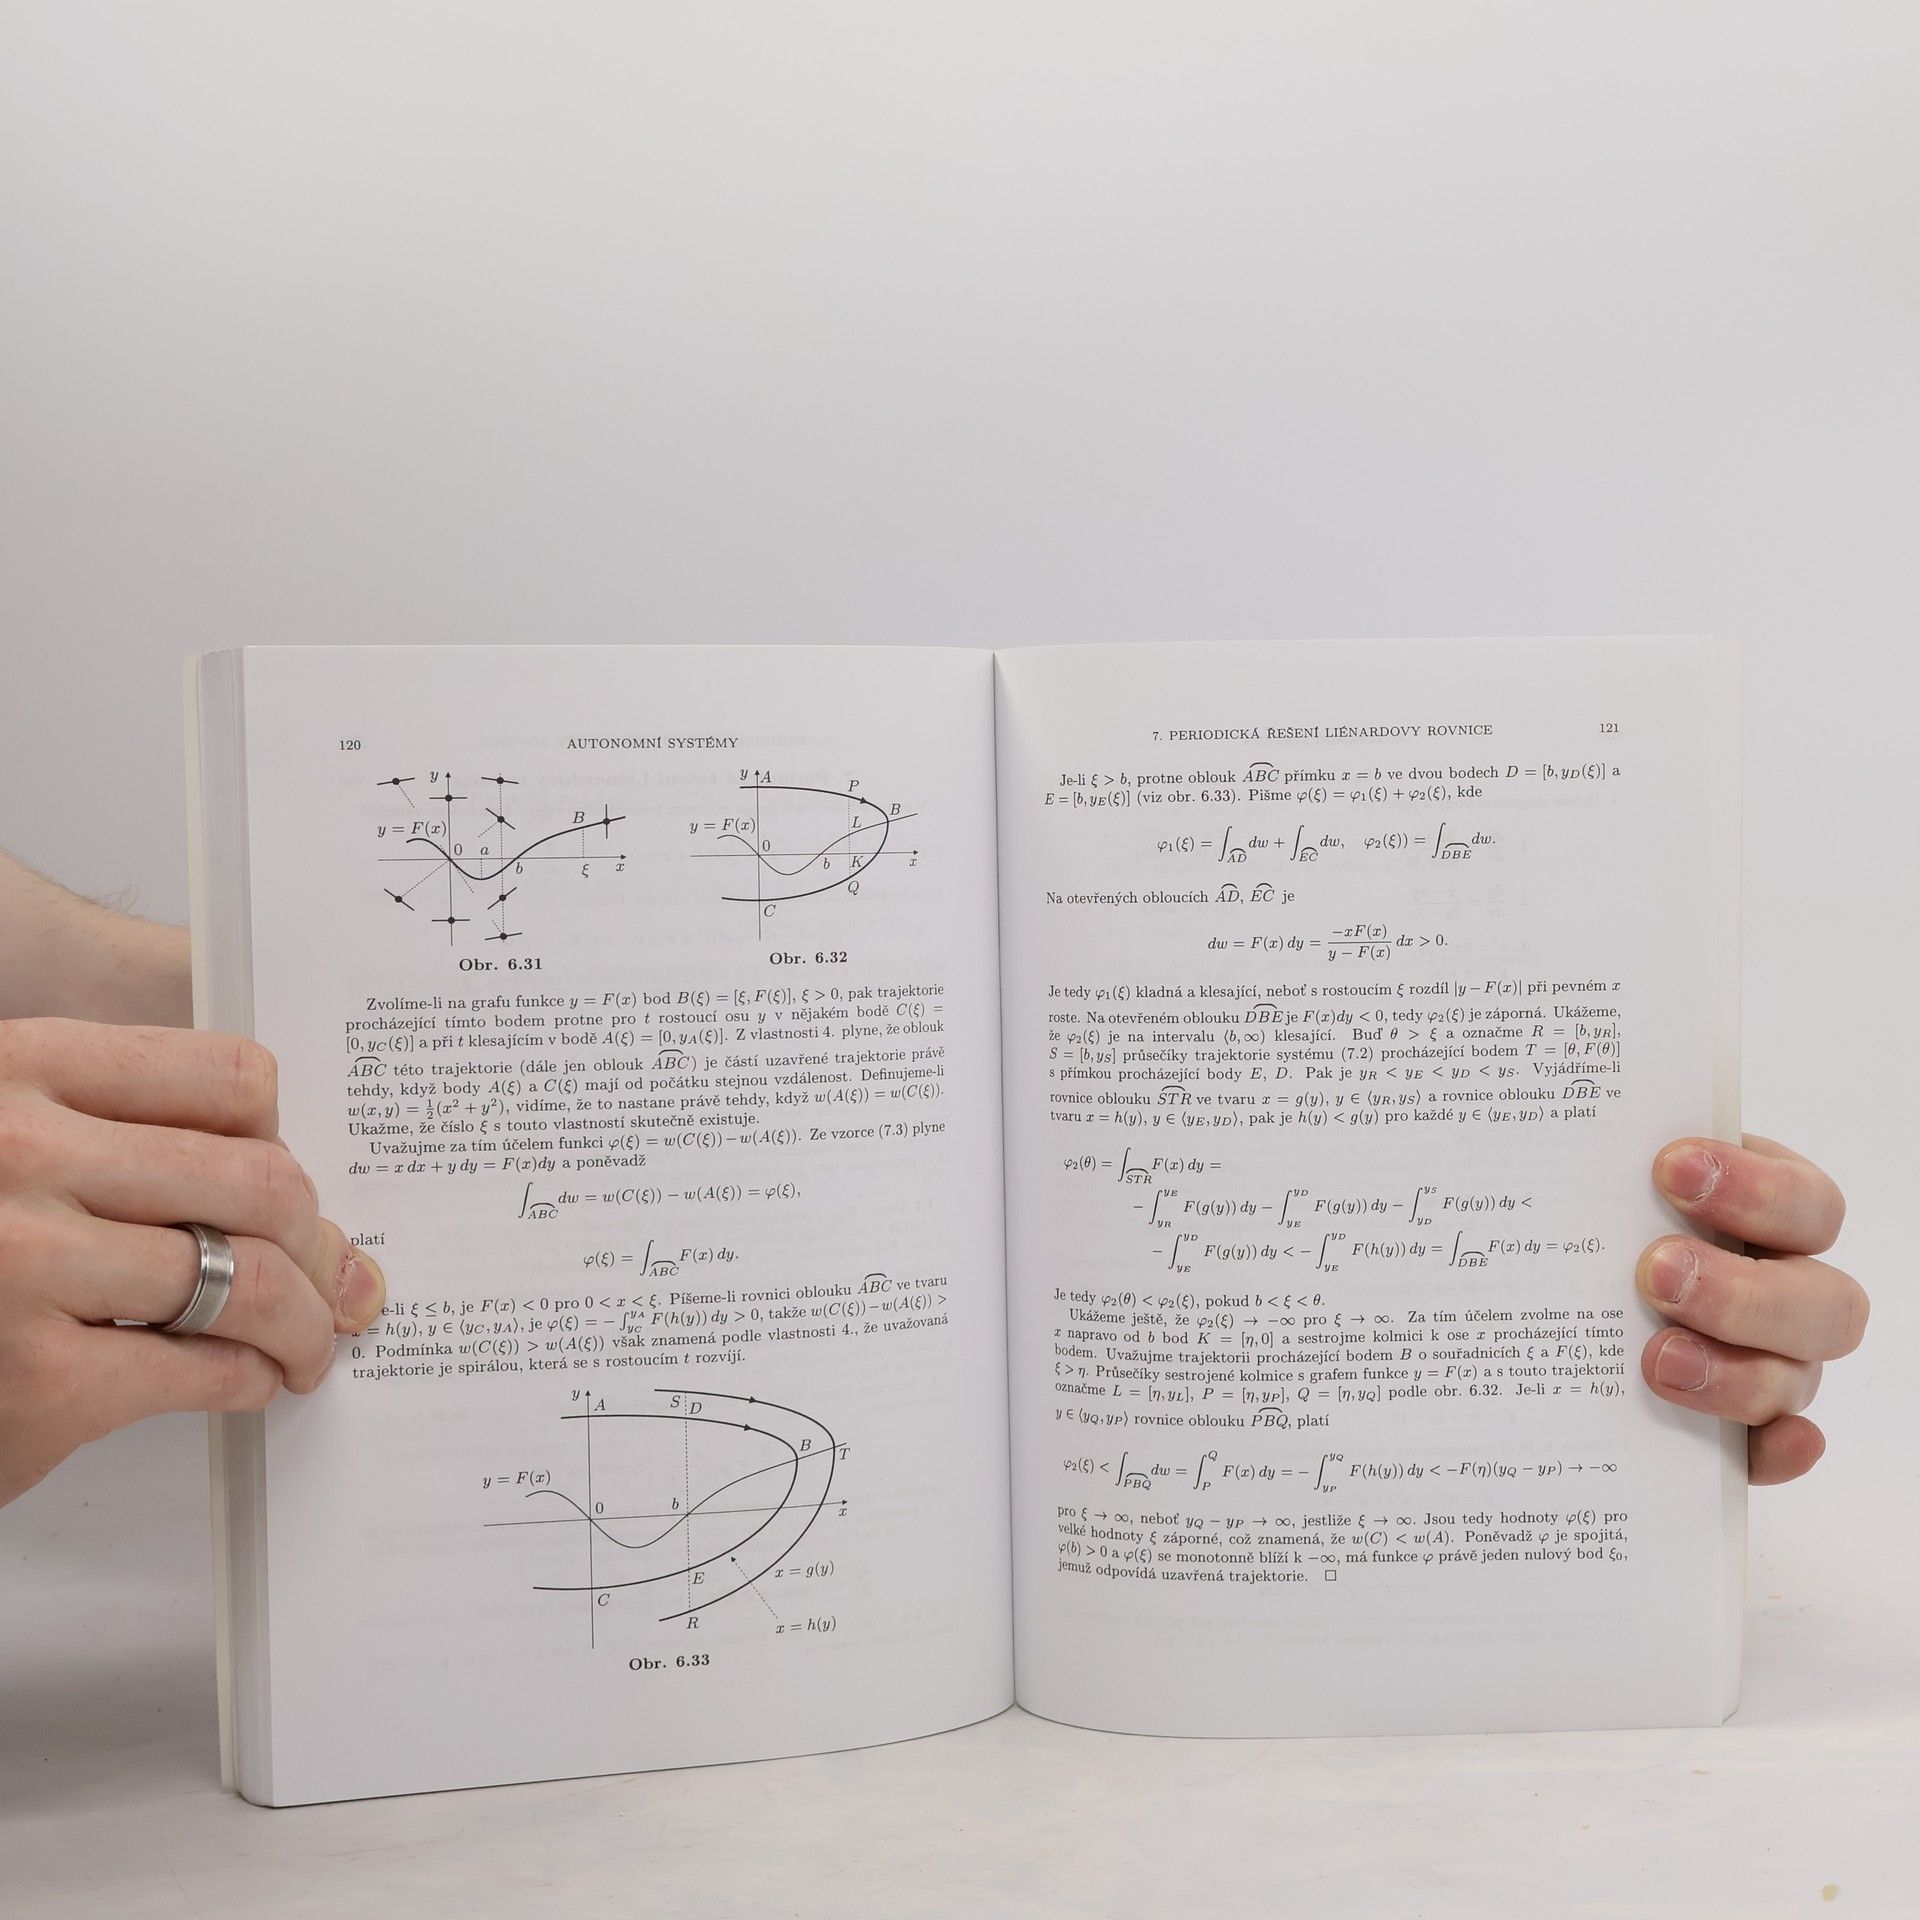 120 AUTONOMNÍ SYSTÉMY
y
y = F(x)
0 a b B ξ x
Obr. 6.31
y A P B
y = F(x) L
0 b K x
Q
C
Obr. 6.32
Zvolíme-li na grafu funkce y = F(x) bod B(ξ) = [ξ, F(ξ)], ξ > 0, pak trajektorie
procházející tímto bodem protne pro t rostoucí osu y v nějakém bodě C(ξ) =
[0, y_C(ξ)] a při t klesajícím v bodě A(ξ) = [0, y_A(ξ)]. Z vlastnosti 4. plyne, že oblouk
ABC této trajektorie (dále jen oblouk ABC) je částí uzavřené trajektorie právě
tehdy, když body A(ξ) a C(ξ) mají od počátku stejnou vzdálenost. Definujeme-li
w(x, y) = ½(x² + y²), vidíme, že to nastane právě tehdy, když w(A(ξ)) = w(C(ξ)).
Ukažme, že číslo ξ s touto vlastností skutečně existuje.
Uvažujme za tím účelem funkci φ(ξ) = w(C(ξ)) − w(A(ξ)). Ze vzorce (7.3) plyne
dw = x dx + y dy = F(x)dy a poněvadž
∫_ABC dw = w(C(ξ)) − w(A(ξ)) = φ(ξ),
platí
φ(ξ) = ∫_ABC F(x) dy.
e-li ξ ≤ b, je F(x) < 0 pro 0 < x < ξ. Píšeme-li rovnici oblouku ABC ve tvaru
x = h(y), y ∈ ⟨y_C, y_A⟩, je φ(ξ) = − ∫_{y_C}^{y_A} F(h(y)) dy > 0, takže w(C(ξ)) − w(A(ξ)) >
0. Podmínka w(C(ξ)) > w(A(ξ)) však znamená podle vlastnosti 4., že uvažovaná
trajektorie je spirálou, která se s rostoucím t rozvíjí.
y A S D
B T
y = F(x)
0 b x
E x = g(y)
C
R x = h(y)
Obr. 6.33
7. PERIODICKÁ ŘEŠENÍ LIÉNARDOVY ROVNICE 121
Je-li ξ > b, protne oblouk ABC přímku x = b ve dvou bodech D = [b, y_D(ξ)] a
E = [b, y_E(ξ)] (viz obr. 6.33). Pišme φ(ξ) = φ₁(ξ) + φ₂(ξ), kde
φ₁(ξ) = ∫_AD dw + ∫_EC dw, φ₂(ξ)) = ∫_DBE dw.
Na otevřených obloucích AD, EC je
dw = F(x) dy = −xF(x) / (y − F(x)) dx > 0.
Je tedy φ₁(ξ) kladná a klesající, neboť s rostoucím ξ rozdíl |y − F(x)| při pevném x
roste. Na otevřeném oblouku DBE je F(x)dy < 0, tedy φ₂(ξ) je záporná. Ukážeme,
že φ₂(ξ) je na intervalu ⟨b, ∞) klesající. Buď θ > ξ a označme R = [b, y_R],
S = [b, y_S] průsečíky trajektorie systému (7.2) procházející bodem T = [θ, F(θ)]
s přímkou procházející body E, D. Pak je y_R < y_E < y_D < y_S. Vyjádříme-li
rovnice oblouku STR ve tvaru x = g(y), y ∈ ⟨y_R, y_S⟩ a rovnice oblouku DBE ve
tvaru x = h(y), y ∈ ⟨y_E, y_D⟩, pak je h(y) < g(y) pro každé y ∈ ⟨y_E, y_D⟩ a platí
φ₂(θ) = ∫_STR F(x) dy =
− ∫_{y_R}^{y_E} F(g(y)) dy − ∫_{y_E}^{y_D} F(g(y)) dy − ∫_{y_D}^{y_S} F(g(y)) dy <
− ∫_{y_E}^{y_D} F(g(y)) dy < − ∫_{y_E}^{y_D} F(h(y)) dy = ∫_DBE F(x) dy = φ₂(ξ).
Je tedy φ₂(θ) < φ₂(ξ), pokud b < ξ < θ.
Ukážeme ještě, že φ₂(ξ) → −∞ pro ξ → ∞. Za tím účelem zvolme na ose
x napravo od b bod K = [η, 0] a sestrojme kolmici k ose x procházející tímto
bodem. Uvažujme trajektorii procházející bodem B o souřadnicích ξ a F(ξ), kde
ξ > η. Průsečíky sestrojené kolmice s grafem funkce y = F(x) a s touto trajektorií
označme L = [η, y_L], P = [η, y_P], Q = [η, y_Q] podle obr. 6.32. Je-li x = h(y),
y ∈ ⟨y_Q, y_P⟩ rovnice oblouku PBQ, platí
φ₂(ξ) < ∫_PBQ dw = ∫_P^Q F(x) dy = − ∫_{y_P}^{y_Q} F(h(y)) dy < −F(η)(y_Q − y_P) → −∞
pro ξ → ∞, neboť y_Q − y_P → ∞, jestliže ξ → ∞. Jsou tedy hodnoty φ(ξ) pro
velké hodnoty ξ záporné, což znamená, že w(C) < w(A). Poněvadž φ je spojitá,
φ(b) > 0 a φ(ξ) se monotonně blíží k −∞, má funkce φ právě jeden nulový bod ξ₀,
jemuž odpovídá uzavřená trajektorie. □